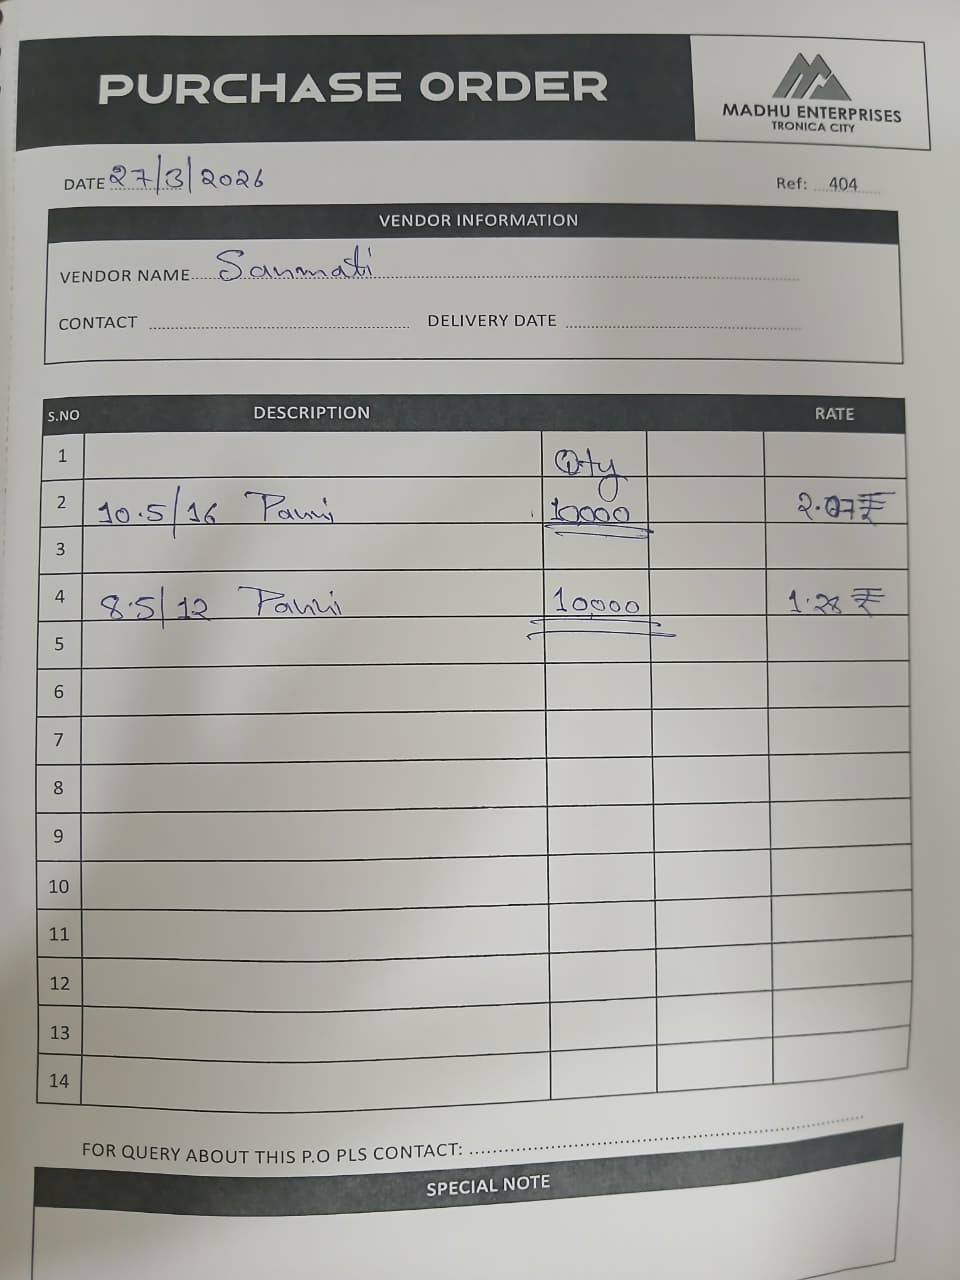 PURCHASE ORDER
MADHU ENTERPRISES
TRONICA CITY
DATE 27/3/2026
Ref: 404
VENDOR INFORMATION
VENDOR NAME Sanmati
CONTACT DELIVERY DATE
S.NO DESCRIPTION RATE
1 Qty
2 10.5/16 Panni 10000 2.07₹
3
4 8.5/12 Panni 10000 1.28₹
5
6
7
8
9
10
11
12
13
14
FOR QUERY ABOUT THIS P.O PLS CONTACT:
SPECIAL NOTE